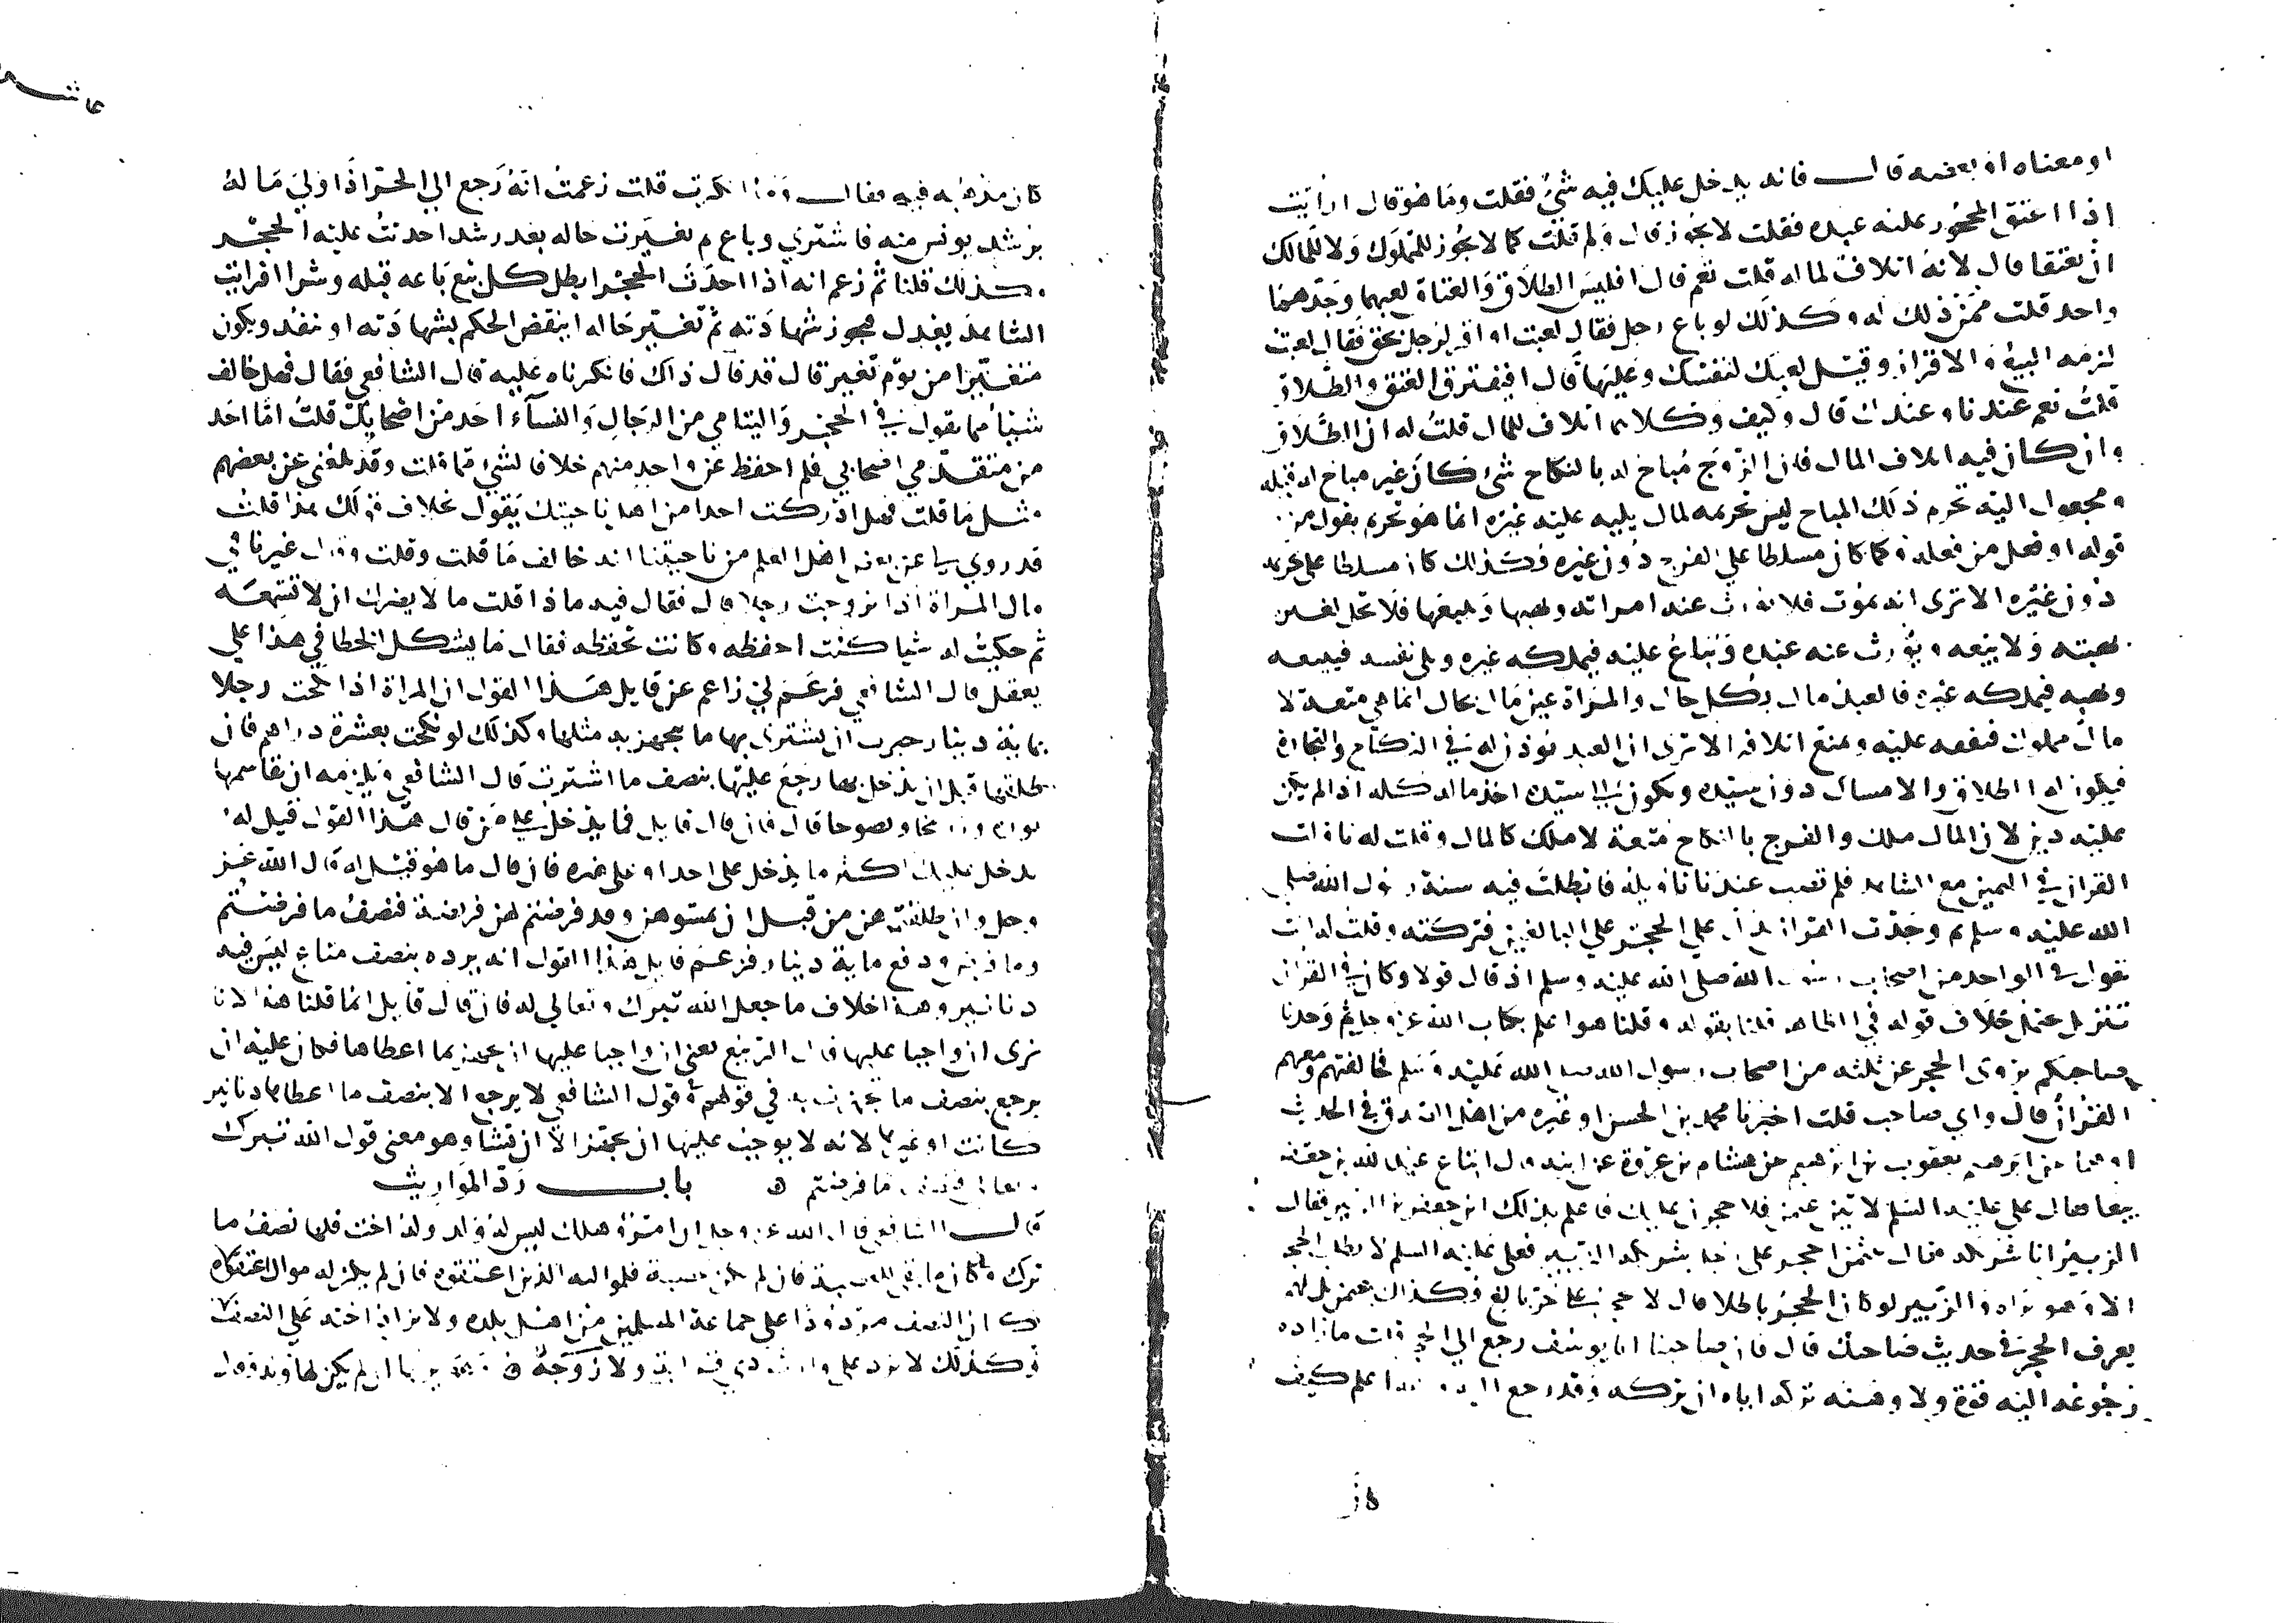 او معناه او بعضه قال فانه يدخل عليك فيه شيء فقلت وما هو قال ارايت
اذا اعتق المحجور عليه عبده فقلت لا يجوز قال ولم قلت كما لا يجوز للمملوك ولا للمالك
ان يعتقا قال لانه اتلاف لماله قلت نعم قال افليس الطلاق والعتاق لعبهما وجدهما
واحد قلت ممن ذلك له وكذلك لو باع رجل فقال لعبت او اقر لرجل بحق فقال لعبت
لزمه البيع والاقرار وقيل لعبك لنفسك وعليها قال افيفترق العتق والطلاق
قلت نعم عندنا وعندك قال وكيف وكلاهما اتلاف للمال قلت له ان الطلاق
وان كان فيه اتلاف المال فان الزوج مباح له بالنكاح شيء كان غير مباح له قبله
ومجعول اليه تحريم ذلك المباح ليس تحريمه لمال يليه عليه غيره انما هو تحريم بقول من
قوله او فعل من فعله وكما كان مسلطا على الفرج دون غيره فكذلك كان مسلطا على تحريمه
دون غيره الا ترى انه يموت فلا تورث عنه امراته ويهبها ويبيعها فلا تحل لغيره
بهبته ولا بيعه ويورث عنه عبده ويباع عليه فيملكه غيره ويلي نفسه فيبيعه
ويهبه فيملكه غيره فالعبد مال بكل حال والمراة غير مال بحال انما هي متعة لا
مال مملوك فننفعه عليه ونمنع اتلافه الا ترى ان العبد يؤذن له في النكاح والتجارة
فيكون له الطلاق والامساك دون سيده ويكون الى سيده اخذ ماله كله اذا لم يكن
عليه دين لان المال ملك والفرج بالنكاح متعة لا ملك كالمال وقلت له تاولت
القران في اليمين مع الشاهد فلم تصب عندنا تاويله فابطلت فيه سنة رسول الله صلى
الله عليه وسلم ثم وجدت القران يدل على الحجر على البالغين فتركته وقلت له انت
تقول في الواحد من اصحاب رسول الله صلى الله عليه وسلم اذ قال قولا وكان في القران
تنزيل يحتمل خلاف قوله في الظاهر قلنا بقوله وقلنا هو اعلم بكتاب الله عز وجل ثم وجدنا
صاحبكم يروي الحجر عن ثلثة من اصحاب رسول الله صلى الله عليه وسلم فخالفتهم ومعهم
القران قال واي صاحب قلت اخبرنا محمد بن الحسن او غيره من اهل الصدق في الحديث
او هما عن ابرهيم يعقوب بن ابرهيم عن هشام بن عروة عن ابيه قال ابتاع عبد الله بن جعفر
بيعا فقال علي عليه السلم لاتين عثمن فلاحجرن عليك فاعلم بذلك ابن جعفر الزبير فقال
الزبير انا شريكه فقال عثمن احجر على رجل شريكه الزبير فعلي عليه السلم لا يطلب الحجر
الا وهو يراه والزبير لو كان الحجر باطلا قال لا حجر على حر بالغ وكذلك عثمن بل كلهم
يعرف الحجر في حديث صاحبك قال فان صاحبنا ابا يوسف رجع الى الحجر قلت ما زاده
رجوعه اليه قوة ولا وهنه تركه اياه ان تركه وقد رجع اليه والله اعلم كيف
كان مذهبه فيه فقال وما انكرت قلت زعمت انه رجع الى الحر اذا ولي ماله
برشد يونس منه فاشترى وباع ثم تغيرت حاله بعد رشد احدثت عليه الحجر
وكذلك قلنا ثم زعم انه اذا احدث الحجر ابطل كل بيع باعه قبله وشرا افرايت
الشاهد يعدل فتجوز شهادته ثم تغير حاله اينقض الحكم بشهادته او ينفذ ويكون
متغيرا من يوم تغير قال قد قال ذاك فانكرناه عليه قال الشافعي فقال فهل خالف
شيئا مما تقول في الحجر واليتامى من الرجال والنساء احد من اصحابك قلت اما احد
من متقدمي اصحابي فلم احفظ عن واحد منهم خلافا لشيء مما قلت وقد بلغني عن بعضهم
مثل ما قلت فهل ادركت احدا من اهل ناحيتك يقول بخلاف قولك هذا قلت
قد روي لي عن بعض اهل العلم من ناحيتنا انه خالف ما قلت وقلت وقال غيرنا في
مال المراة اذا تزوجت رجلا قال فقال فيه ماذا قلت ما لا يضرك ان لا تسمعه
ثم حكيت له شيا كنت احفظه وكانت تحفظه فقال ما يشكل الخطا في هذا على
يعقل قال الشافعي فزعم لي زاعم عن قايل هذا القول ان المراة اذا نكحت رجلا
بماية دينار جبرت ان تشتري بها ما يتجهز به مثلها وكذلك لو نكحت بعشرة دراهم فان
طلقها قبل ان يدخل بها رجع عليها بنصف ما اشترت قال الشافعي ويلزمه ان يقاسمها
قال فان قال قايل فما يدخل على من قال هذا القول قيل له
يدخل عليك اكثر ما يدخل على احد او على غيره فان قال ما هو قيل له قال الله عز
وجل وان طلقتموهن من قبل ان تمسوهن وقد فرضتم لهن فريضة فنصف ما فرضتم
وما فرض ودفع ماية دينار فزعم قايل هذا القول انه يرده بنصف متاع ليس فيه
دنانير وهذا خلاف ما جعل الله تبرك وتعالى له فان قال قايل انما قلنا هذا لانا
نرى ان واجبا عليها قال الربيع يعني ان واجبا عليها ان تجهز بما اعطاها فكان عليه ان
يرجع بنصف ما تجهزت به في قولهم وقول الشافعي لا يرجع الا بنصف ما اعطاها دنانير
كانت او غيرها لانه لا يوجب عليها ان تجهز الا ان تشا وهو معنى قول الله تبرك
وتعالى فنصف ما فرضتم ه باب رد المواريث
قال الشافعي قال الله عز وجل ان امرؤ هلك ليس له ولد وله اخت فلها نصف ما
ترك فان لم تكن عصبة فلمواليه الذين اعتقوه فان لم يكن له موال اعتقوه
كان النصف مردودا على جماعة المسلمين من اهل بلده ولا تزاد اخته على النصف
وكذلك لا يرد على وارث ذي قرابة ولا زوجة لم يكن لها فريضة